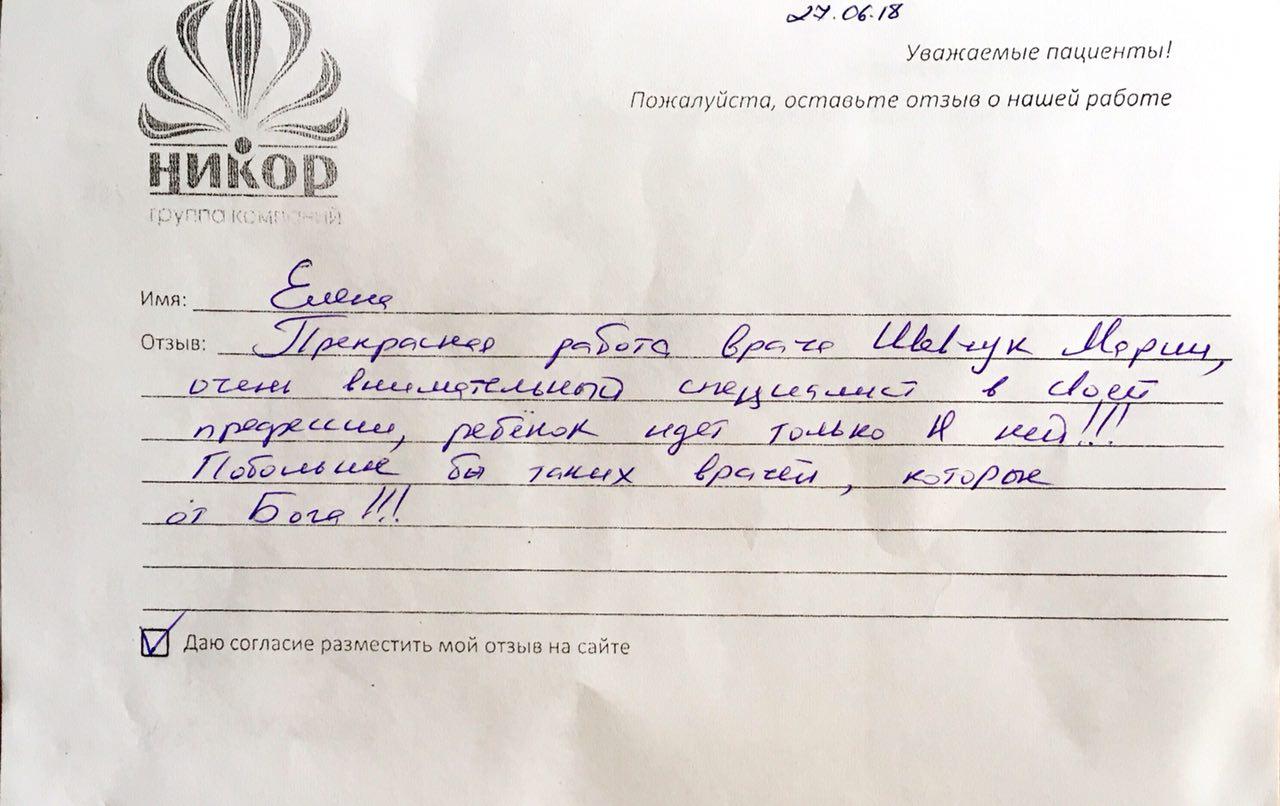 27.06.18
Уважаемые пациенты!
Пожалуйста, оставьте отзыв о нашей работе
НИКОР
группа компаний
Имя: Елена
Отзыв: Прекрасная работа врача Шевчук Марии,
очень внимательный специалист в своей
профессии, ребёнок идет только к ней!!!
Побольше бы таких врачей, которые
от Бога!!!
Даю согласие разместить мой отзыв на сайте